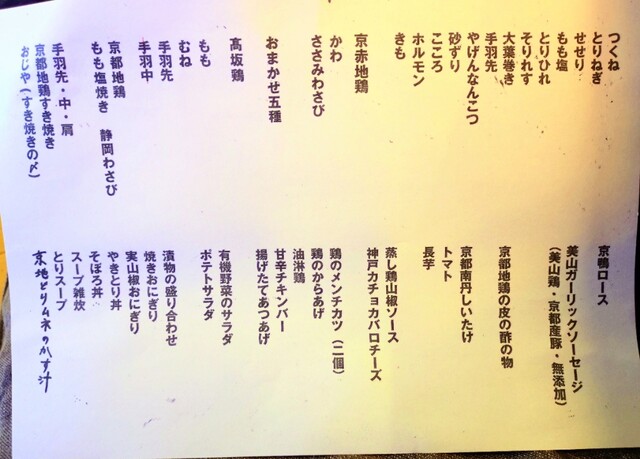 つくね
とりねぎ
せせり
もも塩
とりひれ
そりれす
大葉巻き
手羽先
やげんなんこつ
砂ずり
こころ
ホルモン
きも
京赤地鶏
かわ
ささみわさび
おまかせ五種
髙坂鶏
もも
むね
手羽先
手羽中
京都地鶏
もも塩焼き 静岡わさび
手羽先・中・肩
京都地鶏すき焼き
おじや(すき焼きの〆)
京鴨ロース
美山ガーリックソーセージ
(美山鶏・京都産豚・無添加)
京都地鶏の皮の酢の物
京都南丹しいたけ
トマト
長芋
蒸し鶏山椒ソース
神戸カチョカバロチーズ
鶏のメンチカツ(二個)
鶏のからあげ
油淋鶏
甘辛チキンバー
揚げたてあつあげ
有機野菜のサラダ
ポテトサラダ
漬物の盛り合わせ
焼きおにぎり
実山椒おにぎり
やきとり丼
そぼろ丼
スープ雑炊
とりスープ
京地どりムネのかす汁